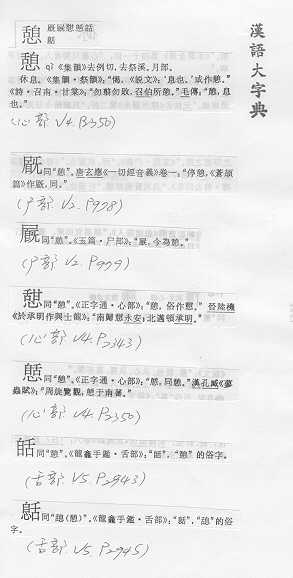 漢語大字典
憩
憩 qì《集韻》去例切,去祭溪。月部。
休息。《集韻·祭韻》:“愒,《説文》:‘息也。’或作憩。”
《詩·召南·甘棠》:“勿翦勿敗,召伯所憩。”毛傳:“憩,息
也。”
(心部 V4. P2350)
同“憩”。唐玄應《一切經音義》卷一:“停憩,《蒼頡
篇》作㞃,同。”
(尸部 V2. P978)
同“憩”。《玉篇·尸部》:“㞃,今為憩。”
(尸部 V2. P979)
憇同“憩”。《正字通·心部》:“憇,俗作憩。”晉陸機
《於承明作與士龍》:“南歸憩永安,北邁頓承明。”
(心部 V4. P2343)
同“憩”。《正字通·心部》:“同憩。”漢孔臧《蓼
蟲賦》:“周旋覽觀,憩于南藩。”
(心部 V4. P2350)
同“憩”。《龍龕手鑑·舌部》:“憩”的俗字。
(舌部 V5. P2943)
(憩)”。《龍龕手鑑·舌部》:的俗
字。
(舌部 V5 P2945)